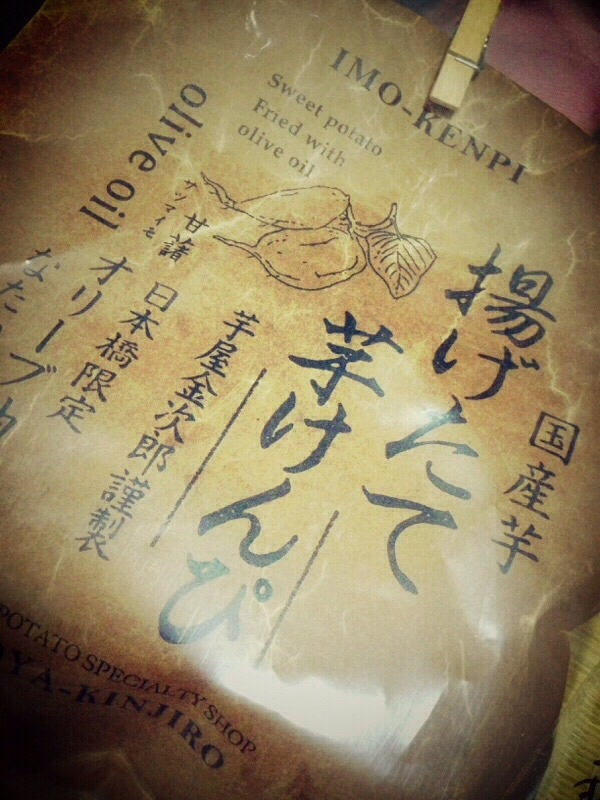 IMO-KENPI
Sweet potato
Fried with
olive oil
olive oil
国産芋
揚げたて
芋けんぴ
芋屋金次郎謹製
甘藷
サツマイモ
日本橋限定
オリーブ
なた
POTATO SPECIALTY SHOP
OYA-KINJIRO